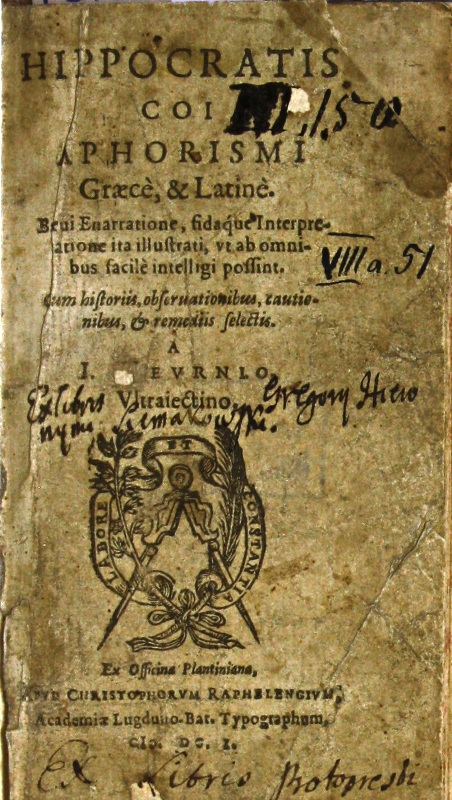 HIPPOCRATIS
COI
APHORISMI
Græcè, & Latinè.
Breui Enarratione, fidaque Interpre-
tatione ita illustrati, vt ab omni-
bus facilè intelligi possint.
VIIII a. 51
Cum historiis, obseruationibus, cautio-
nibus, & remediis selectis.
A
I. HEVRNIO,
Vltraiectino.
Ex libris Gregorij Hiero
nymi
LABORE ET CONSTANTIA
Ex Officina Plantiniana,
APVD CHRISTOPHORVM RAPHELENGIVM,
Academiæ Lugduno-Bat. Typographum,
CIↃ. DC. I.
Ex Libris